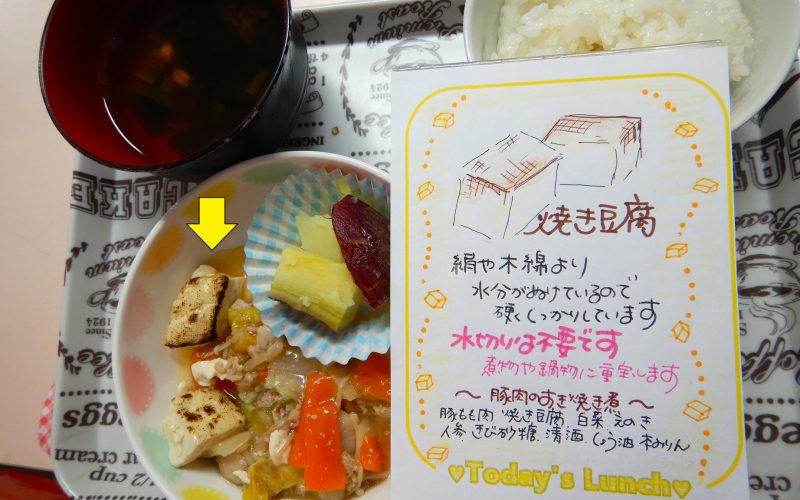 焼き豆腐
絹や木綿より
水分がぬけているので
硬くしっかりしています
水切りは不要です
煮物や鍋物に重宝します
～豚肉のすき焼き煮～
豚もも肉 焼き豆腐 白菜 えのき
人参 きび砂糖 清酒 しょう油 本みりん
♥Today's Lunch♥
CAKE
Since
1924
INGRE
Premium
Roast
eggs
our cream
1/2 cup